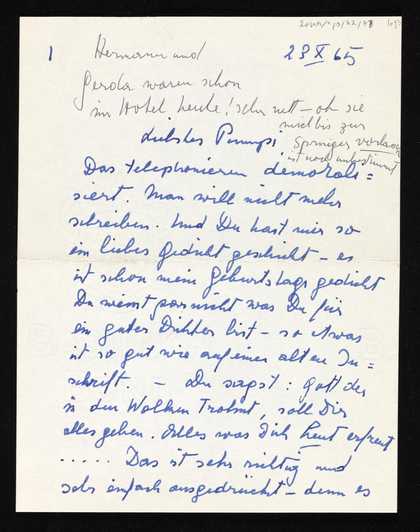 1
23 X 65
Hermann und
Gerda waren schon
im Hotel heute! Sehr nett – ob sie
mich bis zur
Springer
ist noch unbestimmt
liebster Pumpi!
Das telephonieren demorali=
siert. Man will nicht mehr
schreiben. Und Du hast mir so
ein liebes Gedicht geschickt – es
ist schon mein Geburtstagsgedicht
Du weisst gar nicht was Du für
ein guter Dichter bist – so etwas
ist so gut wie auf einer alten In=
schrift. – Du sagst: Gott der
in den Wolken Trohnt, soll Dir
alles geben. Alles was Dich heut erfreut
..... Das ist sehr richtig und
sehr einfach ausgedrückt – denn es